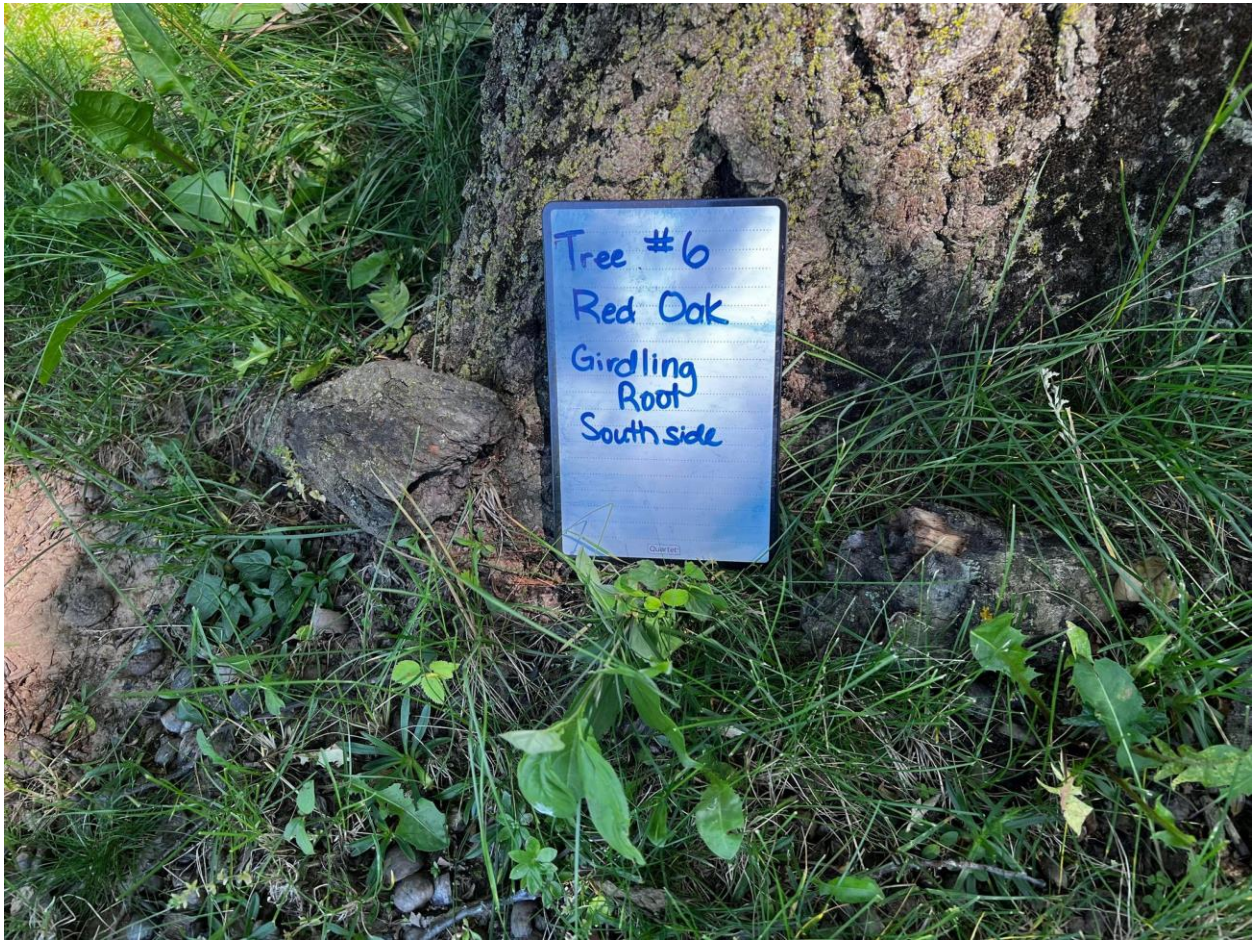 Tree #6
Red Oak
Girdling
Root
South side
Quartet